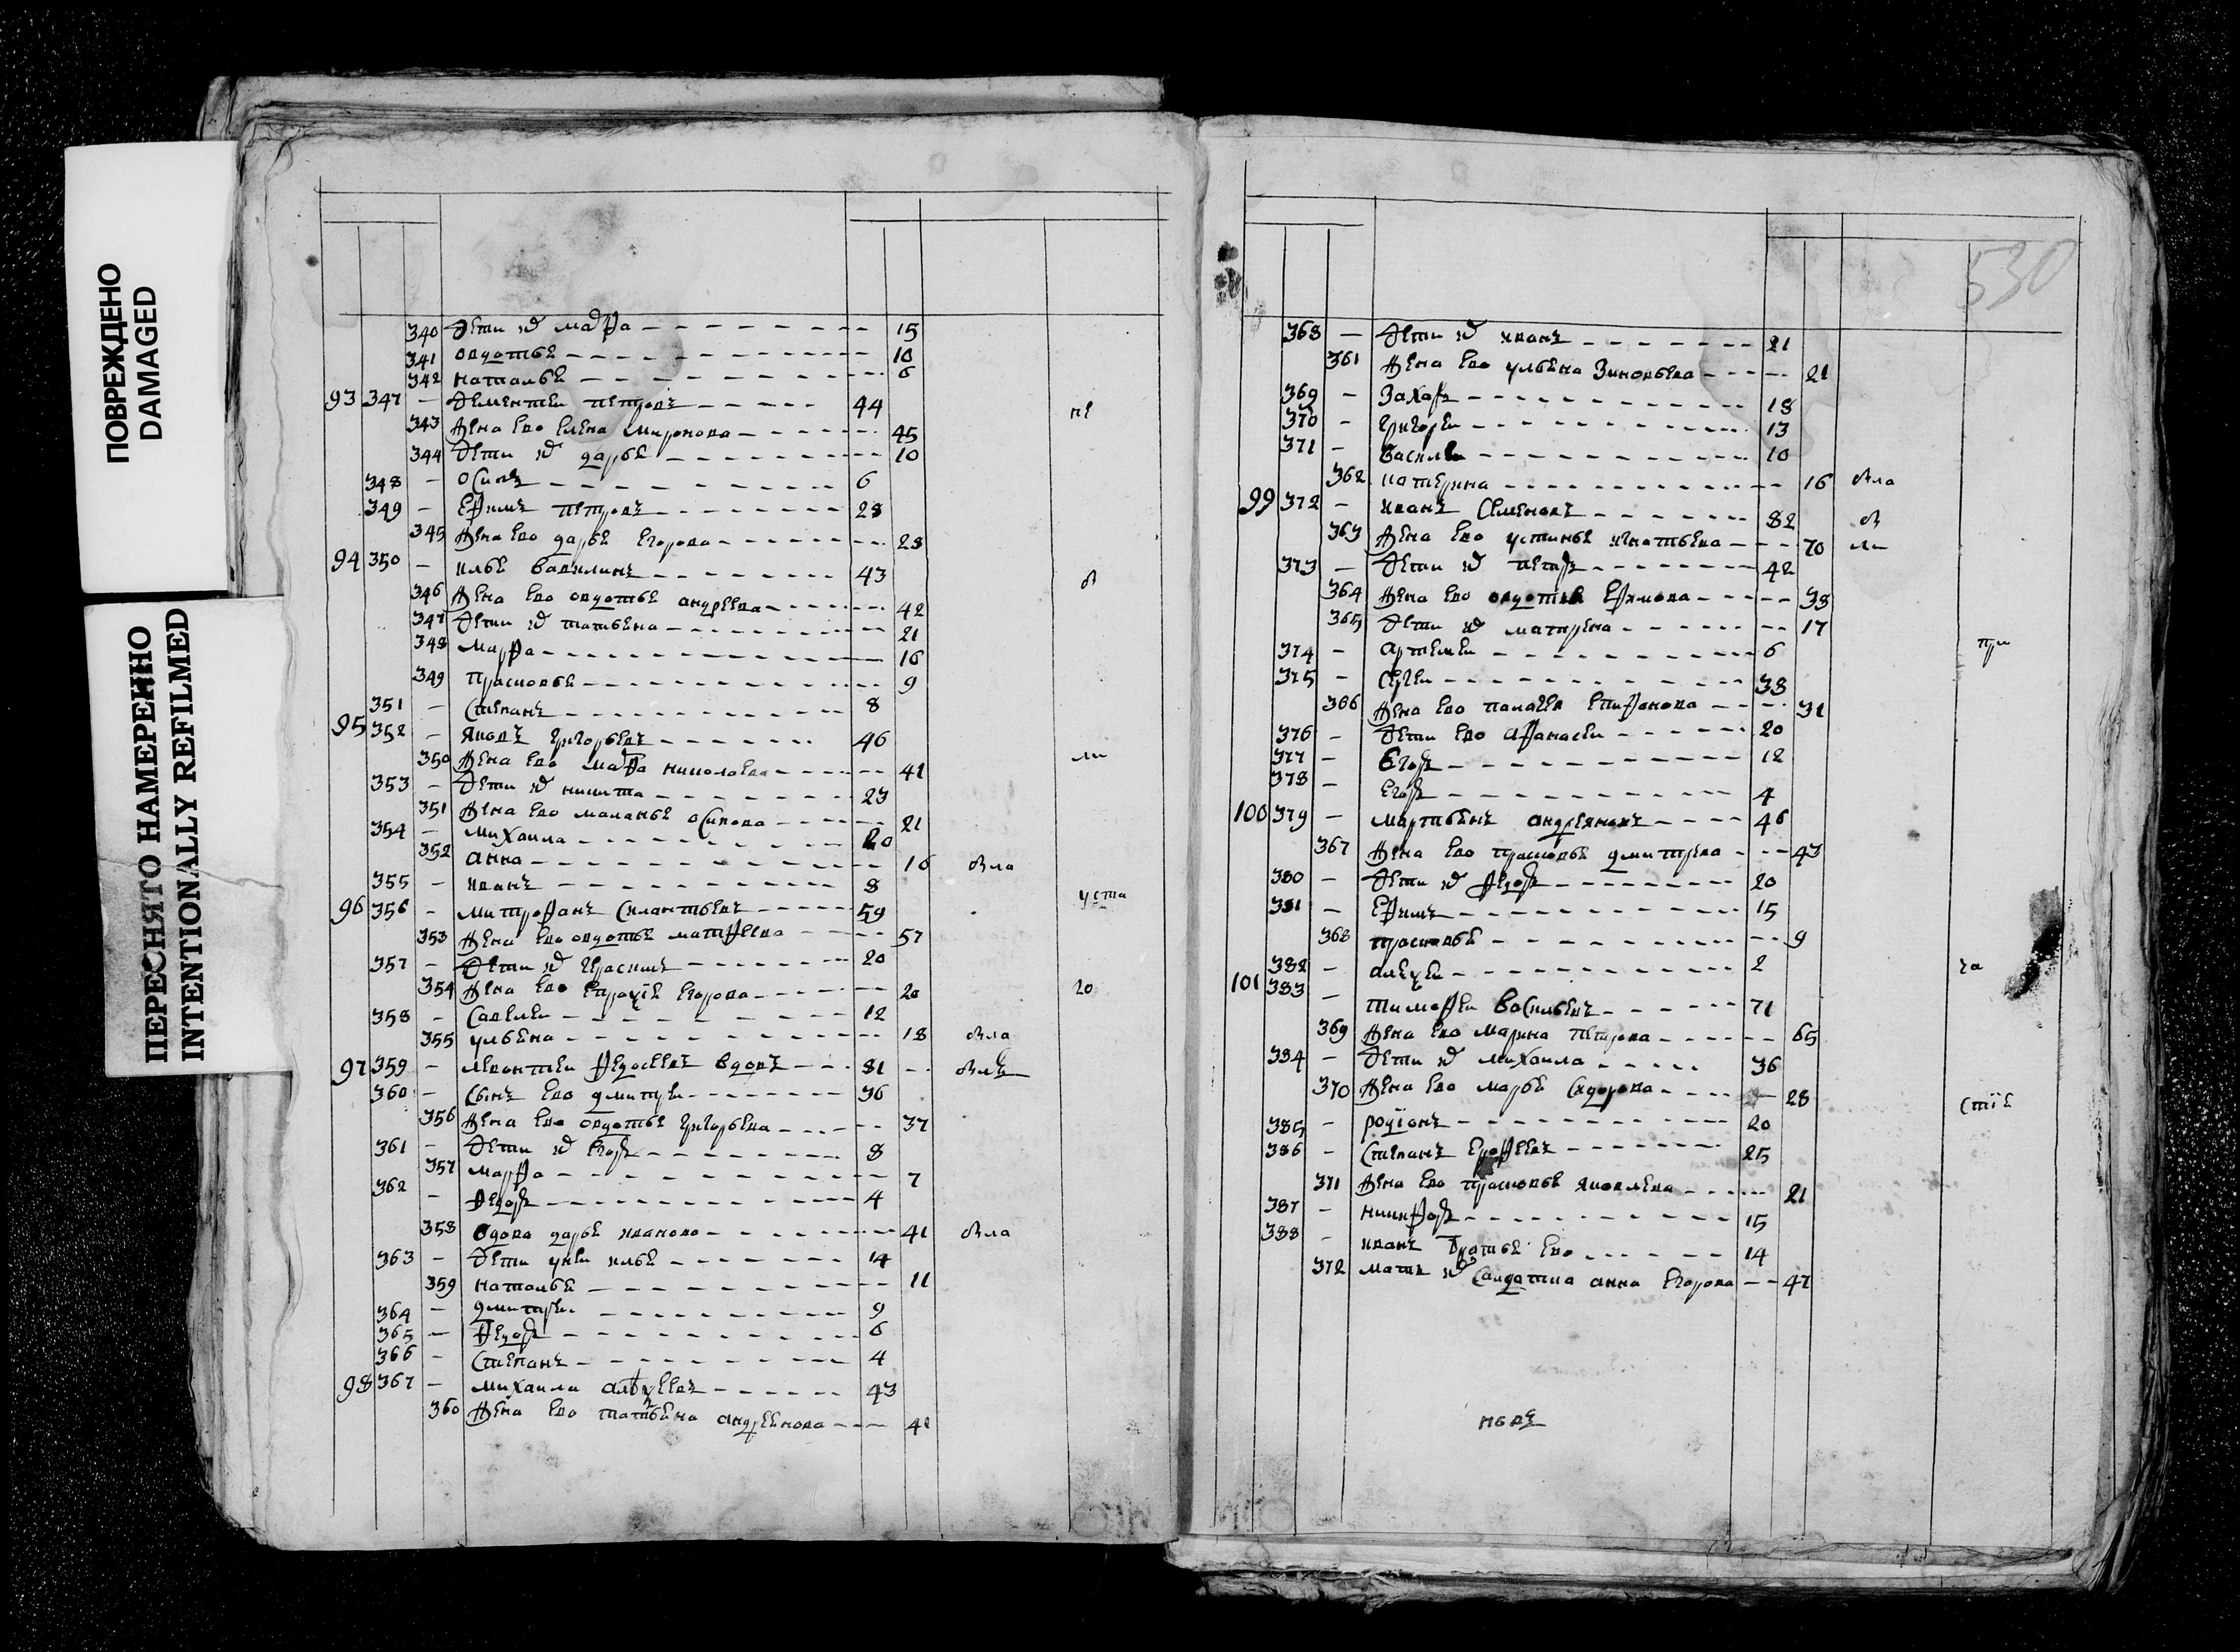 ПОВРЕЖДЕНО
DAMAGED
ПЕРЕСНЯТО НАМЕРЕННО
INTENTIONALLY REFILMED
340 дети их марфа 15
341 овдотья 10
342 наталья 6
93 347 - дементеи петровъ 44 не
343 жена ево елена миронова 45
344 дети их дарья 10
348 - осипъ 6
349 - ефимъ петровъ 28
345 жена ево дарья егорова 28
94 350 - илья вавилинъ 43 в
346 жена ево овдотья андреева 42
347 дети их татьяна 21
348 марфа 16
349 прасковья 9
351 - степанъ 8
95 352 - яковъ григорьевъ 46
350 жена ево марфа николаева 41 ли
353 - дети их никита 23
351 жена ево маланья осипова 21
354 - михаила 20
352 анна 16 вла
355 - иванъ 8
96 356 - митрофанъ силантьевъ 59 уста
353 жена ево овдотья матфеева 57
357 - дети их герасимъ 20
354 жена ево егорова 20 го
358 - савелеи 12
355 ульяна 18 вла
97 359 - леонтеи федосеевъ вдовъ 81
360 - сынъ ево дмитреи 36
356 жена ево овдотья григорьева 37
361 - дети их егоръ 8
357 марфа 7
362 - федоръ 4
358 вдова дарья иванова 41 вла
363 - дети у неи илья 14
359 наталья 11
364 - дмитреи 9
365 - федоръ 6
366 - степанъ 4
98 367 - михаила алѣксеевъ 43
360 жена ево татьяна андреянова 42
530
368 - дети их иванъ 21
361 жена ево ульяна зиновьева 21
369 - захаръ 18
370 - григореи 13
371 - василеи 10
362 катерина 16 вла
99 372 - иванъ семеновъ 82 в
363 жена ево устинья игнатьева 70 ли
373 - дети их петръ 42
364 жена ево овдотья ефимова 38
365 дети их матрена 17
374 - артемеи 6 при
375 - сергеи 38
366 жена ево палагея епифанова 31
376 - дети ево афанасеи 20
377 - егоръ 12
378 - егоръ 4
100 379 - мартынъ андреяновъ 46
367 жена ево прасковья дмитрева 43
380 - дети их федоръ 20
381 - ефимъ 15
368 прасковья 9
382 - алексеи 2 ча
101 383 - тимофеи васильевъ 71
369 жена ево марина петрова 65
384 - дети их михаила 36
370 жена ево марья сидорова 28 стїя
385 - родїонъ 20
386 - степанъ ерофеевъ 25
371 жена ево прасковья яковлева 21
387 - никифоръ 15
388 - иванъ братья ево 14
372 мать их салдатка анна егорова 47